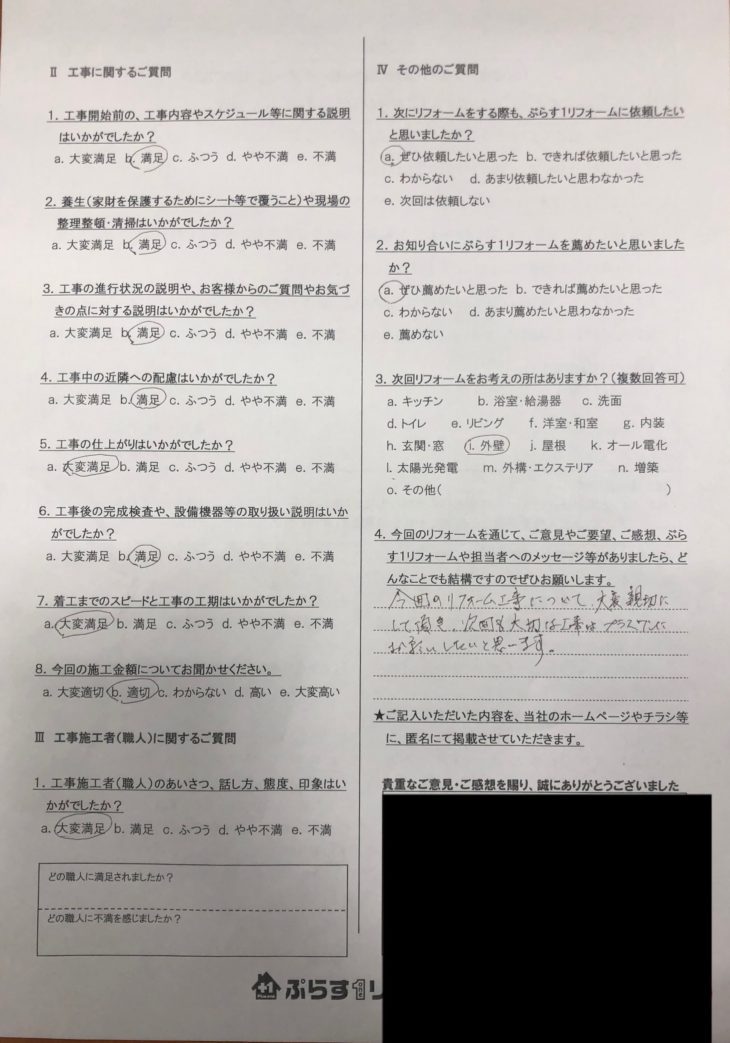 Ⅱ 工事に関するご質問
1. 工事開始前の、工事内容やスケジュール等に関する説明
はいかがでしたか？
a. 大変満足 b. 満足 c. ふつう d. やや不満 e. 不満
2. 養生(家財を保護するためにシート等で覆うこと)や現場の
整理整頓・清掃はいかがでしたか？
a. 大変満足 b. 満足 c. ふつう d. やや不満 e. 不満
3. 工事の進行状況の説明や、お客様からのご質問やお気づ
きの点に対する説明はいかがでしたか？
a. 大変満足 b. 満足 c. ふつう d. やや不満 e. 不満
4. 工事中の近隣への配慮はいかがでしたか？
a. 大変満足 b. 満足 c. ふつう d. やや不満 e. 不満
5. 工事の仕上がりはいかがでしたか？
a. 大変満足 b. 満足 c. ふつう d. やや不満 e. 不満
6. 工事後の完成検査や、設備機器等の取り扱い説明はいか
がでしたか？
a. 大変満足 b. 満足 c. ふつう d. やや不満 e. 不満
7. 着工までのスピードと工事の工期はいかがでしたか？
a. 大変満足 b. 満足 c. ふつう d. やや不満 e. 不満
8. 今回の施工金額についてお聞かせください。
a. 大変適切 b. 適切 c. わからない d. 高い e. 大変高い
Ⅲ 工事施工者(職人)に関するご質問
1. 工事施工者(職人)のあいさつ、話し方、態度、印象はい
かがでしたか？
a. 大変満足 b. 満足 c. ふつう d. やや不満 e. 不満
どの職人に満足されましたか？
どの職人に不満を感じましたか？
Ⅳ その他のご質問
1. 次にリフォームをする際も、ぷらす1リフォームに依頼したい
と思いましたか？
a. ぜひ依頼したいと思った b. できれば依頼したいと思った
c. わからない d. あまり依頼したいと思わなかった
e. 次回は依頼しない
2. お知り合いにぷらす1リフォームを薦めたいと思いました
か？
a. ぜひ薦めたいと思った b. できれば薦めたいと思った
c. わからない d. あまり薦めたいと思わなかった
e. 薦めない
3. 次回リフォームをお考えの所はありますか？(複数回答可)
a. キッチン b. 浴室・給湯器 c. 洗面
d. トイレ e. リビング f. 洋室・和室 g. 内装
h. 玄関・窓 i. 外壁 j. 屋根 k. オール電化
l. 太陽光発電 m. 外構・エクステリア n. 増築
o. その他( )
4. 今回のリフォームを通じて、ご意見やご要望、ご感想、ぷら
す1リフォームや担当者へのメッセージ等がありましたら、ど
んなことでも結構ですのでぜひお願いします。
今回のリフォーム工事について、大変親切に
して頂き、次回も大切な工事はプラスワンに
お願いしたいと思います。
★ご記入いただいた内容を、当社のホームページやチラシ等
に、匿名にて掲載させていただきます。
貴重なご意見・ご感想を賜り、誠にありがとうございました
+1 ぷらす1 one リ